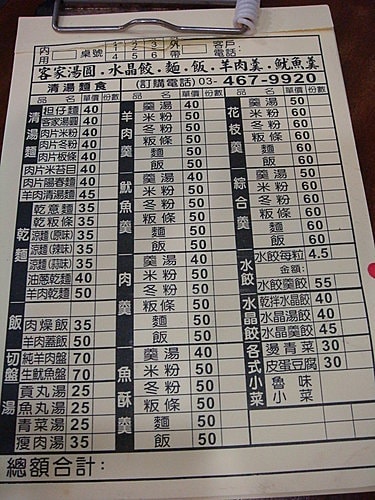 內用 桌號 1 2 3 4 5 6 外帶 客戶電話：
客家湯圓．水晶餃．麵．飯．羊肉羹．魷魚羹
清湯麵食 (訂購電話) 03- 467-9920
品名 單價 份數 品名 單價 份數 品名 單價 份數
清湯麵
担仔麵 40
客家湯圓 40
肉片米粉 40
肉片冬粉 40
肉片板條 40
肉片米苔目 40
肉片陽春麵 40
羊肉清湯麵 45
乾麵
乾意麵 35
乾粄條 35
涼麵(原味) 35
涼麵(辣味) 35
涼麵(蒜味) 35
油蔥乾麵 40
羊肉乾麵 50
飯
肉燥飯 35
羊肉蓋飯 50
切盤
純羊肉盤 70
生魷魚盤 70
湯
貢丸湯 25
魚丸湯 25
青菜湯 25
瘦肉湯 35
羊肉羹
羹湯 40
米粉 50
冬粉 50
粄條 50
麵 50
飯 50
魷魚羹
羹湯 40
米粉 50
冬粉 50
粄條 50
麵 50
飯 50
肉羹
羹湯 40
米粉 50
冬粉 50
粄條 50
麵 50
飯 50
魚酥羹
羹湯 40
米粉 50
冬粉 50
粄條 50
麵 50
飯 50
花枝羹
羹湯 50
米粉 60
冬粉 60
粄條 60
麵 60
飯 60
綜合羹
羹湯 50
米粉 60
冬粉 60
粄條 60
麵 60
飯 60
水餃
水餃每粒 4.5
金額:
水餃羹餃 55
水晶餃
乾拌水晶餃 40
水晶湯餃 40
水晶羹餃 45
各式小菜
燙青菜 30
皮蛋豆腐 30
魯味
小菜
總額合計：